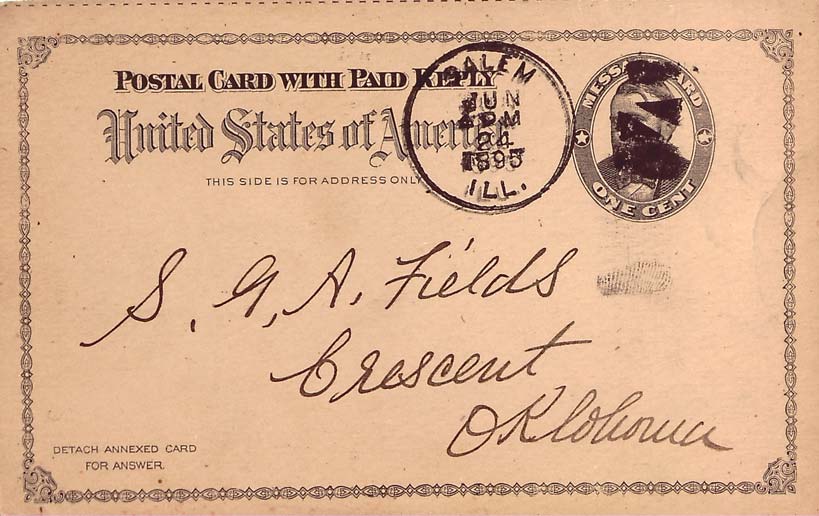 POSTAL CARD WITH PAID REPLY
United States of America
THIS SIDE IS FOR ADDRESS ONLY
SALEM
JUN
PM
24
1895
ILL.
MESSAGE CARD
ONE CENT
S. G. A. Fields
Crescent
Oklohoma
DETACH ANNEXED CARD
FOR ANSWER.